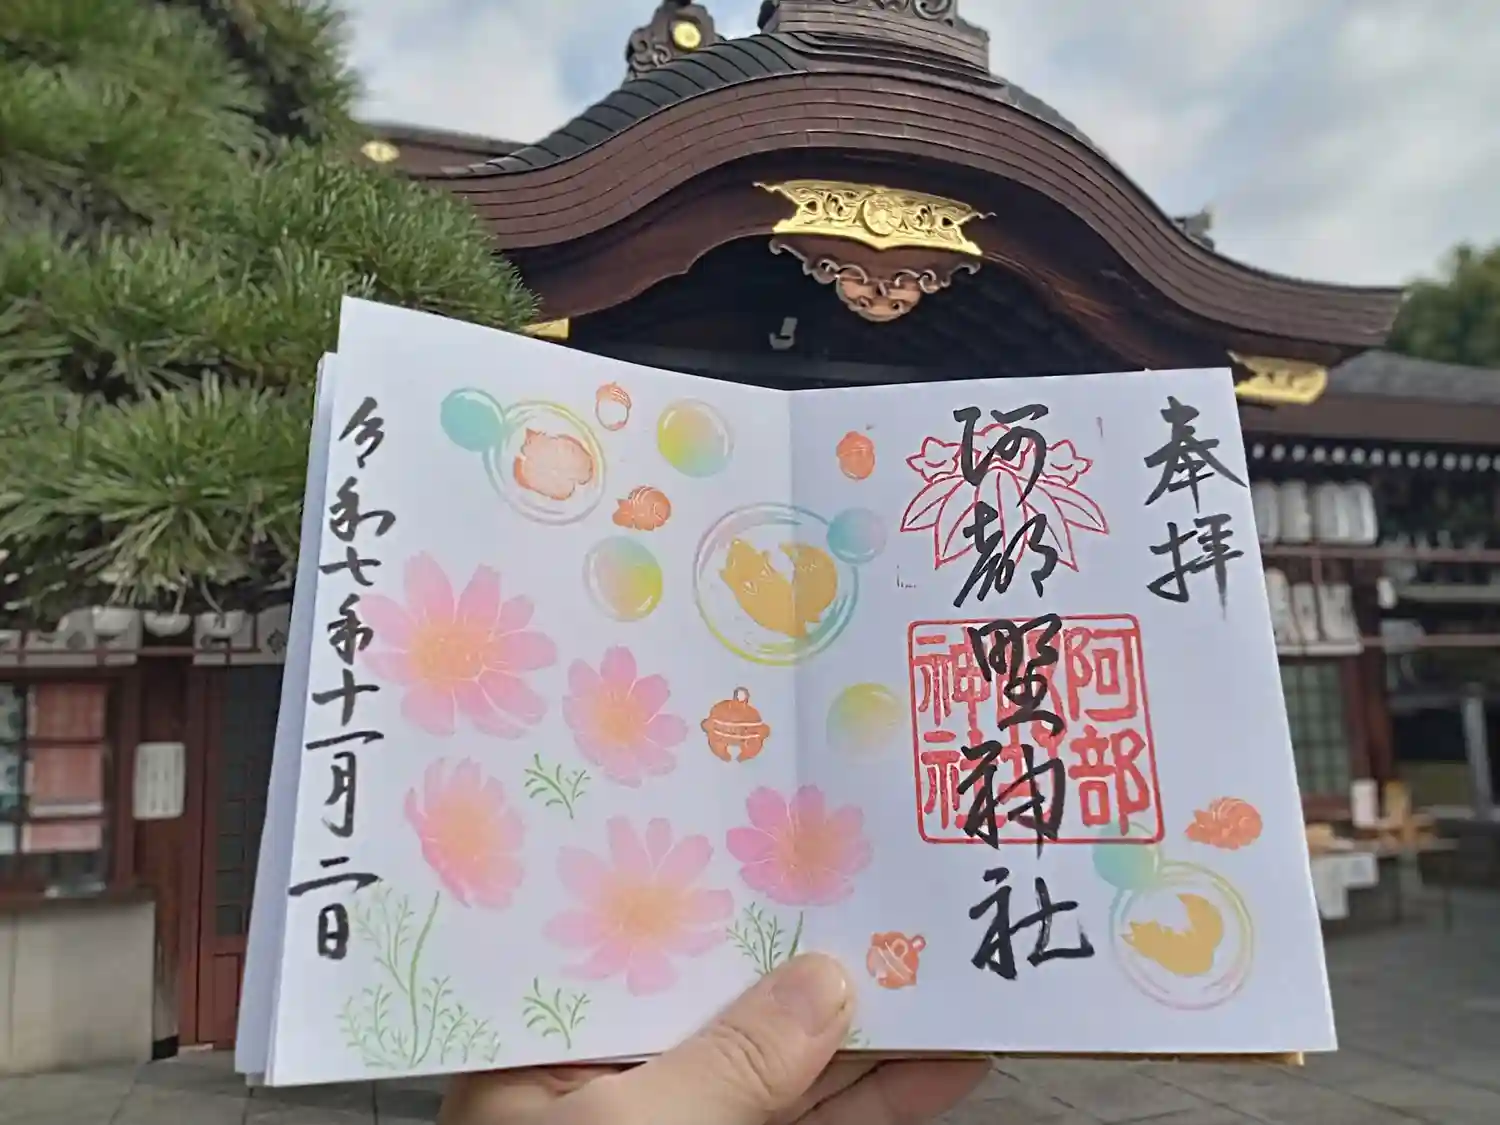 奉拝
阿都野神社
阿部
神社
令和七年十一月二日